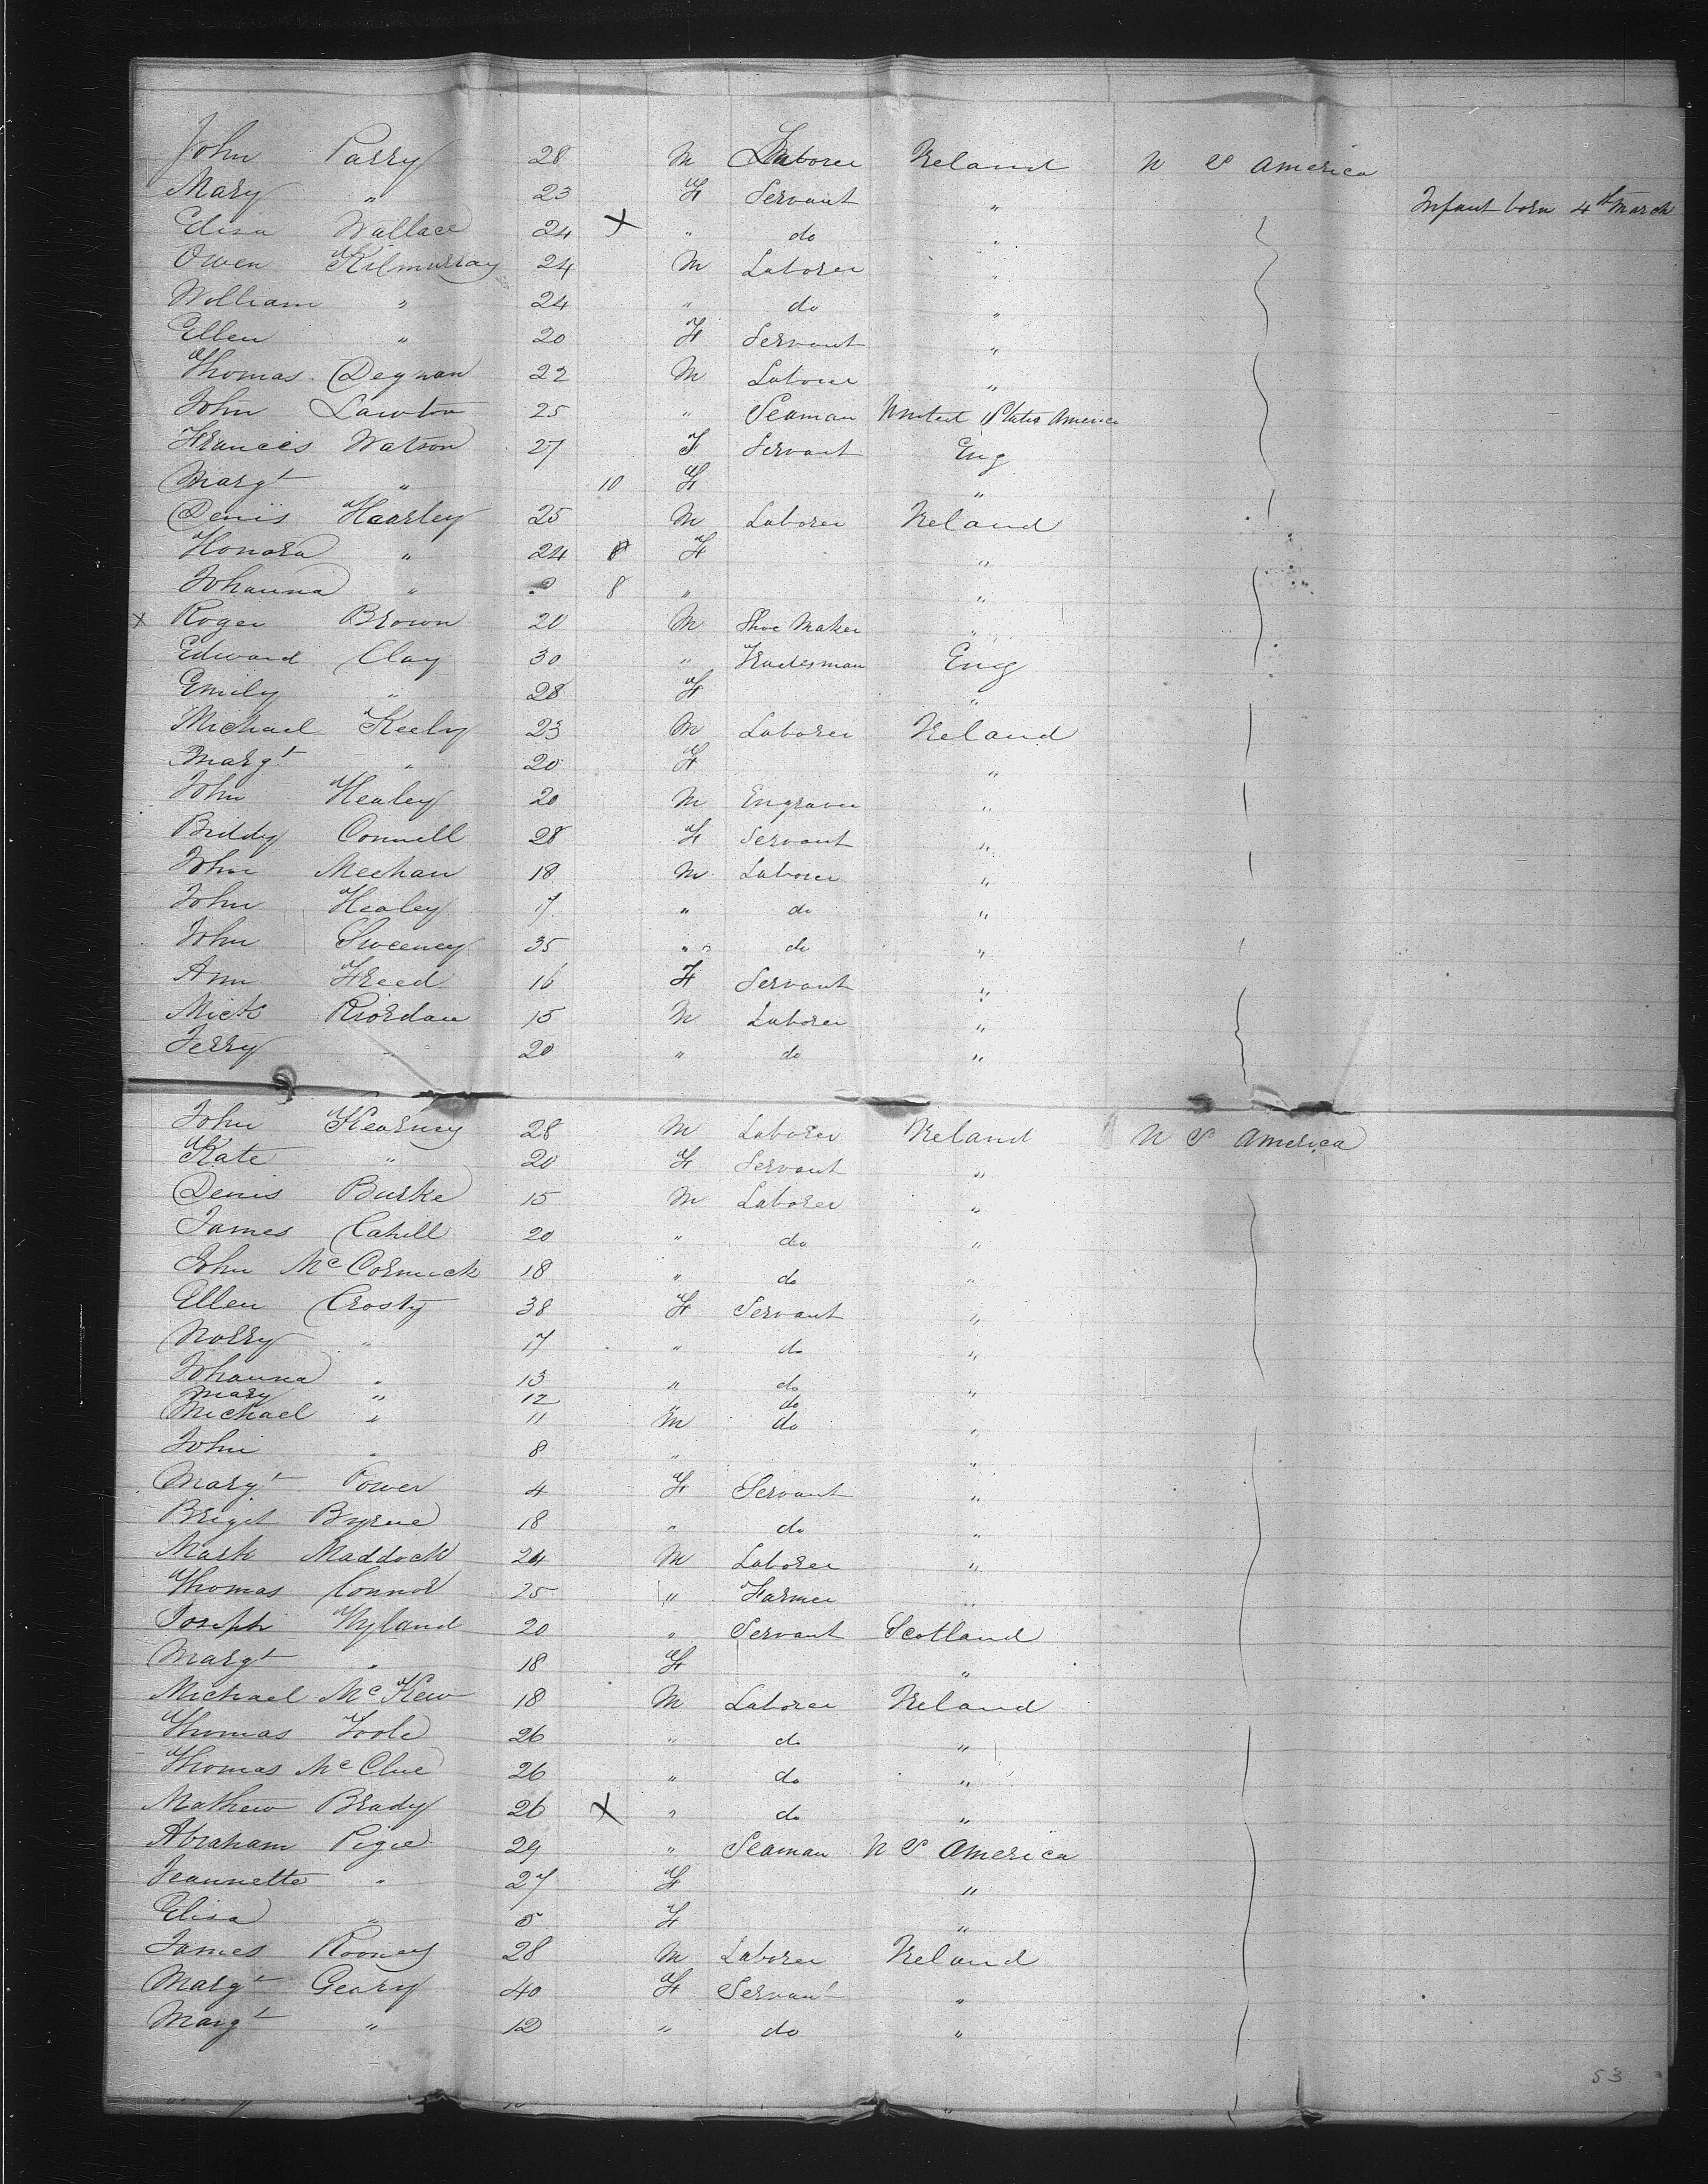 John Parry 28 M Laborer Ireland U S America
Mary " 23 F Servant " Infant born 4th March
Elisa Wallace 24 X " do "
Owen Kilmurray 24 M Laborer "
William " 24 " do "
Ellen " 20 F Servant "
Thomas Degnan 22 M Laborer "
John Lawton 25 " Seaman United States America
Frances Watson 27 F Servant Eng
Margt " 10 F "
Denis Hearley 25 M Laborer Ireland
Honora " 24 F "
Johanna " 8 " "
X Roger Brown 20 M Shoe Maker "
Edward Clay 30 " Tradesman Eng
Emily " 28 F "
Michael Keely 23 M Laborer Ireland
Margt " 20 F "
John Healey 20 M Engraver "
Biddy Connell 28 F Servant "
John Meehan 18 M Laborer "
John Healey 17 " do "
John Sweeney 35 " do "
Ann Freed 16 F Servant "
Mick Riordan 15 M Laborer "
Jerry " 20 " do "
John Kearney 28 M Laborer Ireland U S America
Kate " 20 F Servant "
Denis Burke 15 M Laborer "
James Cahill 20 " do "
John McCormick 18 " do "
Ellen Crosty 38 F Servant "
Norry " 17 " do "
Johanna " 13 " do "
Mary " 12 " do
Michael " 11 M do "
John " 8 " "
Margt Power 4 F Servant "
Briget Byrne 18 " do "
Mark Maddock 24 M Laborer "
Thomas Connor 25 " Farmer "
Joseph Hyland 20 " Servant Scotland
Margt " 18 F "
Michael McKew 18 M Laborer Ireland
Thomas Toole 26 " do "
Thomas McClue 26 " do "
Mathew Brady 26 X " do "
Abraham Pigie 29 " Seaman U S America
Jeannette " 27 F "
Elisa " 5 F "
James Rooney 28 M Laborer Ireland
Margt Geary 40 F Servant "
Margt " 12 " do "
53